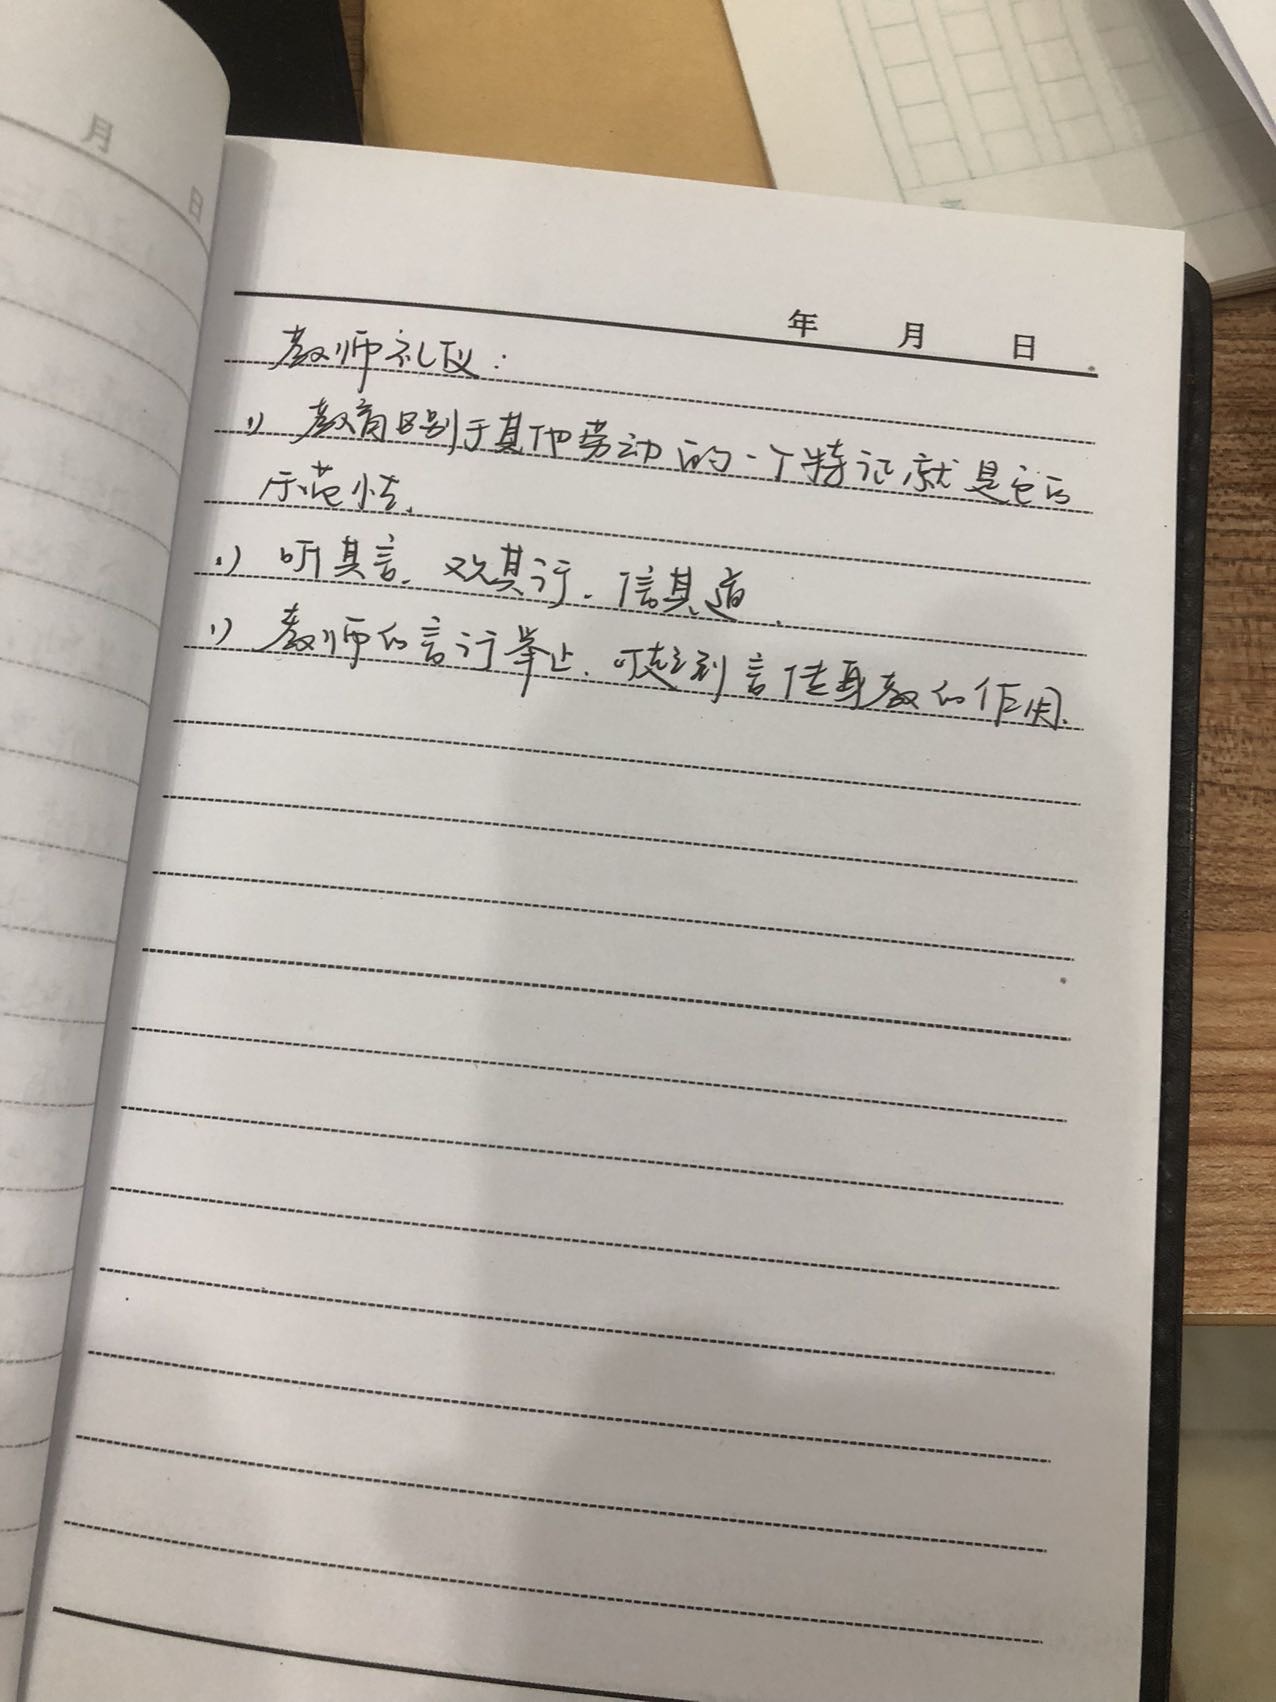 月
日
年 月 日
教师礼仪:
1) 教育区别于其他劳动的一个特记就是它的
示范性.
1) 听其言. 观其行. 信其道.
1) 教师的言行举止. 可起到言传身教的作用.